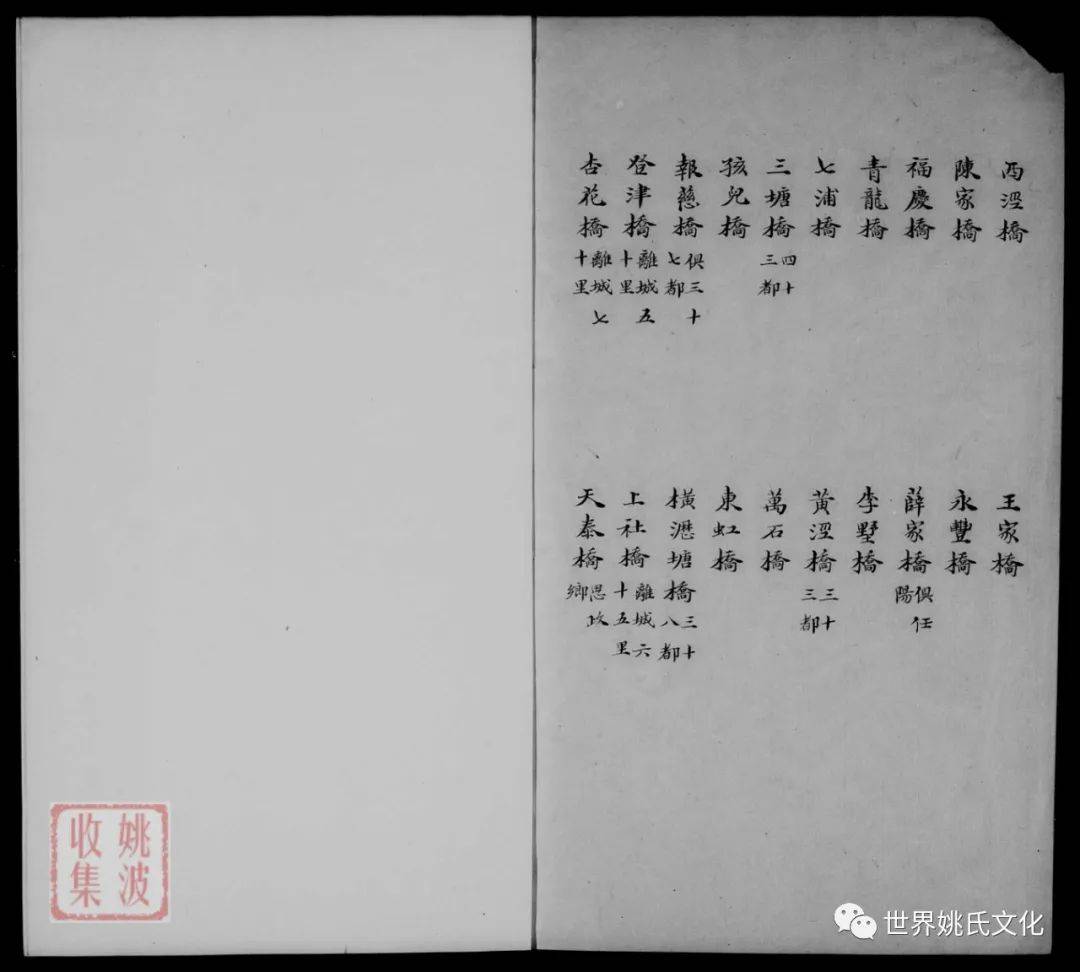 西涇橋 王家橋
陳家橋 永豐橋
福慶橋 薛家橋俱任陽
青龍橋 李墅橋
七浦橋 黃涇橋三十三都
三塘橋四十三都 萬石橋
孩兒橋 東虹橋
報慈橋俱三十七都 橫瀝塘橋三十八都
登津橋離城五十里 上社橋離城六十五里
杏花橋離城七十里 天泰橋思政鄉
姚波
收集
世界姚氏文化